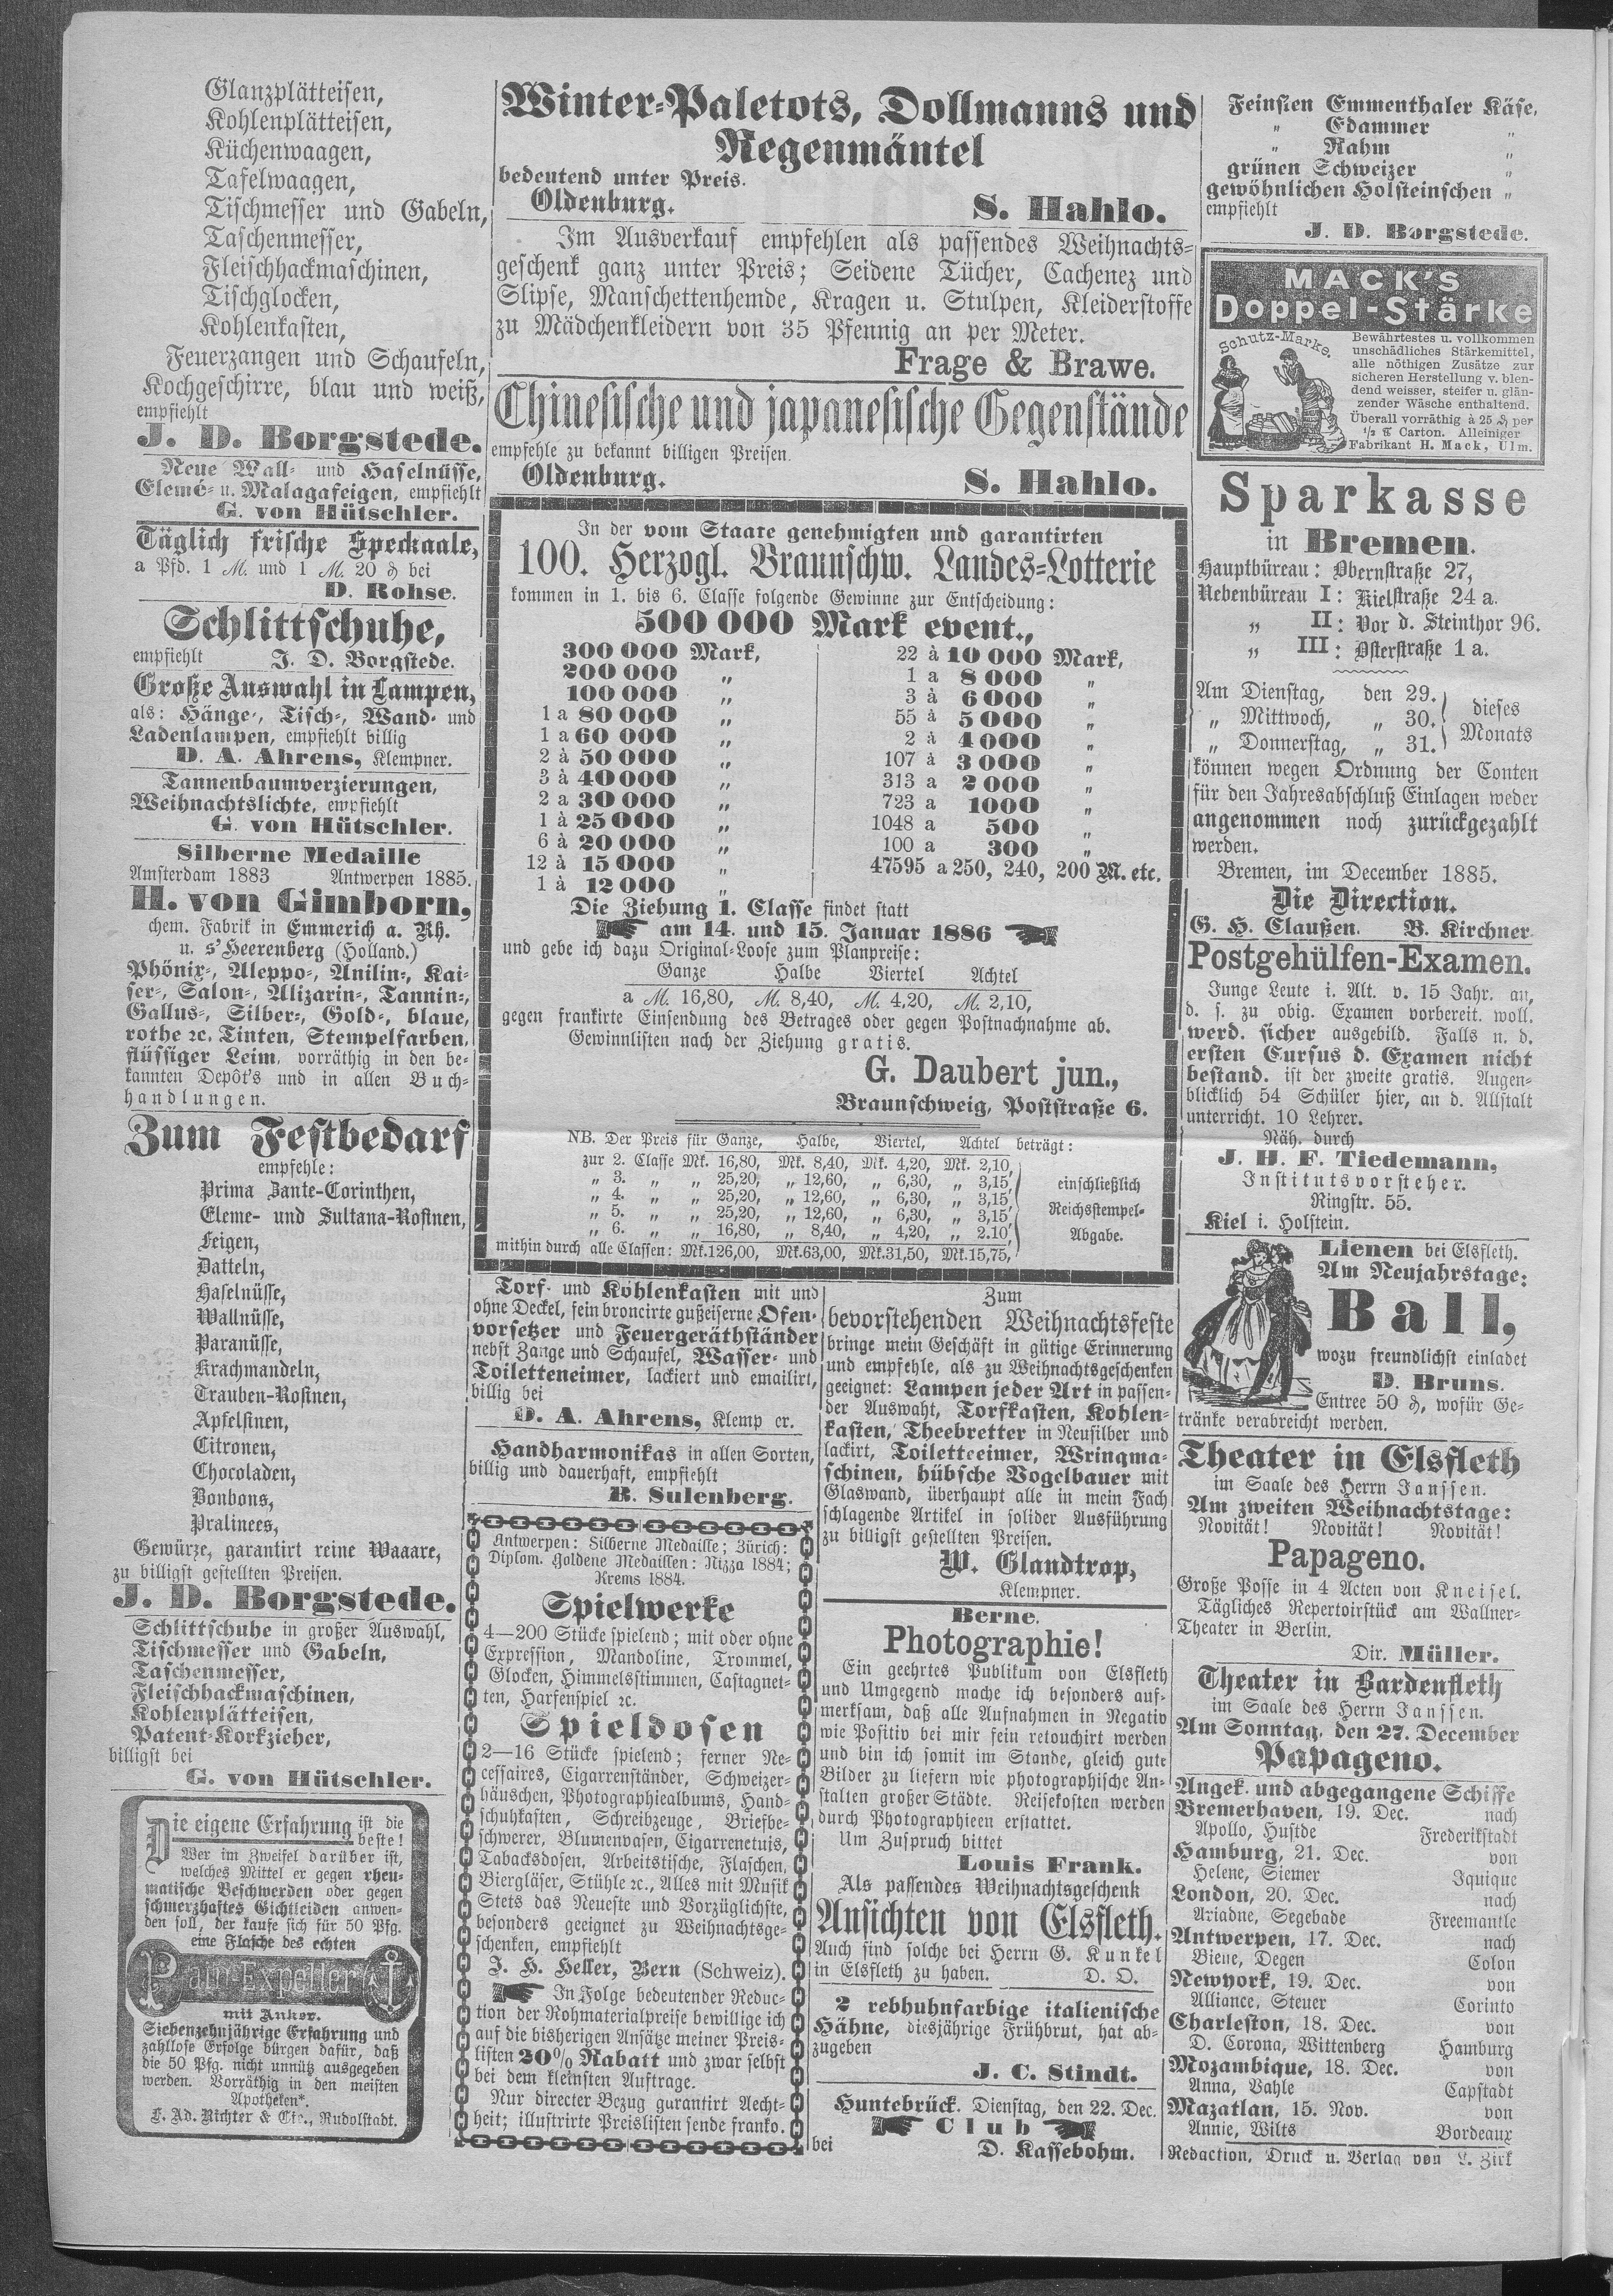 Glanzplätteisen,
Kohlenplätteisen,
Küchenwaagen,
Tafelwaagen,
Tischmesser und Gabeln,
Taschenmesser,
Fleischhackmaschinen,
Tischglocken,
Kohlenkasten,
Feuerzangen und Schaufeln,
Kochgeschirre, blau und weiß,
empfiehlt
J. D. Borgstede.
Neue Wall- und Haselnüsse,
Elemé- u. Malagafeigen, empfiehlt
G. von Hütschler.
Täglich frische Speckaale,
a Pfd. 1 M. und 1 M. 20 ₰ bei
D. Rohse.
Schlittschuhe,
empfiehlt J. D. Borgstede.
Große Auswahl in Lampen,
als: Hänge-, Tisch-, Wand- und
Ladenlampen, empfiehlt billig
D. A. Ahrens, Klempner.
Tannenbaumverzierungen,
Weihnachtslichte, empfiehlt
G. von Hütschler.
Silberne Medaille
Amsterdam 1883 Antwerpen 1885.
H. von Gimborn,
chem. Fabrik in Emmerich a. Rh.
u. s'Heerenberg (Holland.)
Phönix-, Aleppo-, Anilin-, Kai-
ser-, Salon-, Alizarin-, Tannin-,
Gallus-, Silber-, Gold-, blaue,
rothe ꝛc. Tinten, Stempelfarben,
flüssiger Leim, vorräthig in den be-
kannten Depôt's und in allen Buch-
handlungen.
Zum Festbedarf
empfehle:
Prima Zante-Corinthen,
Eleme- und Sultana-Rosinen,
Feigen,
Datteln,
Haselnüsse,
Wallnüsse,
Paranüsse,
Krachmandeln,
Trauben-Rosinen,
Apfelsinen,
Citronen,
Chocoladen,
Bonbons,
Pralinees,
Gewürze, garantirt reine Waaare,
zu billigst gestellten Preisen.
J. D. Borgstede.
Schlittschuhe in großer Auswahl,
Tischmesser und Gabeln,
Taschenmesser,
Fleischhackmaschinen,
Kohlenplätteisen,
Patent-Korkzieher,
billigst bei
G. von Hütschler.
Die eigene Erfahrung ist die
beste!
Wer im Zweifel darüber ist,
welches Mittel er gegen rheu-
matische Beschwerden oder gegen
schmerzhaftes Gichtleiden anwen-
den soll, der kaufe sich für 50 Pfg.
eine Flasche des echten
Pain-Expeller
mit Anker.
Siebenzehnjährige Erfahrung und
zahllose Erfolge bürgen dafür, daß
die 50 Pfg. nicht unnütz ausgegeben
werden. Vorräthig in den meisten
Apotheken*.
F. Ad. Richter & Cie., Rudolstadt.
Winter-Paletots, Dollmanns und
Regenmäntel
bedeutend unter Preis.
Oldenburg. S. Hahlo.
Im Ausverkauf empfehlen als passendes Weihnachts-
geschenk ganz unter Preis; Seidene Tücher, Cachenez und
Slipse, Manschettenhemde, Kragen u. Stulpen, Kleiderstoffe
zu Mädchenkleidern von 35 Pfennig an per Meter.
Frage & Brawe.
Chinesische und japanesische Gegenstände
empfehle zu bekannt billigen Preisen.
Oldenburg. S. Hahlo.
In der vom Staate genehmigten und garantirten
100. Herzogl. Braunschw. Landes-Lotterie
kommen in 1. bis 6. Classe folgende Gewinne zur Entscheidung:
500 000 Mark event.,
300 000 Mark,
200 000 „
100 000 „
1 a 80 000 „
1 a 60 000 „
2 à 50 000 „
3 à 40 000 „
2 a 30 000 „
1 à 25 000 „
6 à 20 000 „
12 à 15 000 „
1 à 12 000 „
22 à 10 000 Mark,
1 a 8 000 „
3 à 6 000 „
55 à 5 000 „
2 à 4 000 „
107 à 3 000 „
313 a 2 000 „
723 a 1000 „
1048 a 500 „
100 a 300 „
47595 a 250, 240, 200 M. etc.
Die Ziehung 1. Classe findet statt
am 14. und 15. Januar 1886
und gebe ich dazu Original-Loose zum Planpreise:
Ganze Halbe Viertel Achtel
a M. 16,80, M. 8,40, M. 4.20, M. 2,10,
gegen frankirte Einsendung des Betrages oder gegen Postnachnahme ab.
Gewinnlisten nach der Ziehung gratis.
G. Daubert jun.,
Braunschweig, Poststraße 6.
NB. Der Preis für Ganze, Halbe, Viertel, Achtel beträgt:
zur 2. Classe Mk. 16,80, Mk. 8,40, Mk. 4,20, Mk. 2,10,
„ 3. „ „ 25,20, „ 12,60, „ 6,30, „ 3,15, einschließlich
„ 4. „ „ 25,20, „ 12,60, „ 6,30, „ 3,15,
„ 5. „ „ 25,20, „ 12,60, „ 6,30, „ 3,15 Reichsstempel-
„ 6. „ „ 16,80, „ 8,40, „ 4,20, „ 2.10, Abgabe.
mithin durch alle Classen: Mk.126,00, Mk.63,00, Mk.31,50, Mk.15,75,
Torf- und Kohlenkasten mit und
ohne Deckel, fein broncirte gußeiserne Ofen-
vorsetzer und Feuergeräthständer
nebst Zange und Schaufel, Wasser- und
Toiletteneimer, lackiert und emailirt,
billig bei
D. A. Ahrens, Klemp er.
Handharmonikas in allen Sorten,
billig und dauerhaft, empfiehlt
R. Sulenberg.
Antwerpen: Silberne Medaille; Zürich:
Diplom. Goldene Medaillen: Nizza 1884;
Krems 1884.
Spielwerke
4—200 Stücke spielend; mit oder ohne
Expression, Mandoline, Trommel,
Glocken, Himmelsstimmen, Castagnet-
ten, Harfenspiel ꝛc.
Spieldosen
2—16 Stücke spielend; ferner Ne-
cessaires, Cigarrenständer, Schweizer-
häuschen, Photographiealbums, Hand-
schuhkasten, Schreibzeuge, Briefbe-
schwerer, Blumenvasen, Cigarrenetuis,
Tabacksdosen, Arbeitstische, Flaschen,
Biergläser, Stühle ꝛc., Alles mit Musik
Stets das Neueste und Vorzüglichste,
besonders geeignet zu Weihnachtsge-
schenken, empfiehlt
J. H. Heller, Bern (Schweiz).
In Folge bedeutender Reduc-
tion der Rohmaterialpreise bewillige ich
auf die bisherigen Ansätze meiner Preis-
listen 20% Rabatt und zwar selbst
bei dem kleinsten Auftrage.
Nur directer Bezug garantirt Aecht-
heit; illustrirte Preislisten sende franko.
Zum
bevorstehenden Weihnachtsfeste
bringe mein Geschäft in gütige Erinnerung
und empfehle, als zu Weihnachtsgeschenken
geeignet: Lampen jeder Art in passen-
der Auswaht, Torfkasten, Kohlen-
kasten, Theebretter in Neusilber und
lackirt, Toiletteeimer, Wringma-
schinen, hübsche Vogelbauer mit
Glaswand, überhaupt alle in mein Fach
schlagende Artikel in solider Ausführung
zu billigst gestellten Preisen.
W. Glandtrop,
Klempner.
Berne.
Photographie!
Ein geehrtes Publikum von Elsfleth
und Umgegend mache ich besonders auf-
merksam, daß alle Aufnahmen in Negativ
wie Positiv bei mir fein retouchirt werden
und bin ich somit im Stande, gleich gute
Bilder zu liefern wie photographische An-
stalten großer Städte. Reisekosten werden
durch Photographieen erstattet.
Um Zuspruch bittet
Louis Frank.
Als passendes Weihnachtsgeschenk
Ansichten von Elsfleth.
Auch sind solche bei Herrn G. Kunkel
in Elsfleth zu haben. D. O.
2 rebhuhnfarbige italienische
Hähne, diesjährige Frühbrut, hat ab-
zugeben
J. C. Stindt.
Huntebrück. Dienstag, den 22. Dec.
Club
bei D. Kassebohm.
Feinsten Emmenthaler Käse,
„ Edammer „
„ Rahm „
grünen Schweizer „
gewöhnlichen Holsteinschen „
empfiehlt
J. D. Borgstede.
MACK'S
Doppel-Stärke
Schutz-Marke.
Bewährtestes u. vollkommen
unschädliches Stärkemittel,
alle nöthigen Zusätze zur
sicheren Herstellung v. blen-
dend weisser, steifer u. glän-
zender Wäsche enthaltend.
Überall vorräthig à 25 ₰ per
½ ℔ Carton. Alleiniger
Fabrikant H. Mack, Ulm.
Sparkasse
in Bremen.
Hauptbüreau: Obernstraße 27,
Nebenbüreau I: Kielstraße 24 a.
„ II: Vor d. Steinthor 96.
„ III: Osterstraße 1 a.
Am Dienstag, den 29. dieses
„ Mittwoch, „ 30.
„ Donnerstag, „ 31. Monats
können wegen Ordnung der Conten
für den Jahresabschluß Einlagen weder
angenommen noch zurückgezahlt
werden.
Bremen, im December 1885.
Die Direction.
G. H. Claußen. B. Kirchner.
Postgehülfen-Examen.
Junge Leute i. Alt. v. 15 Jahr. an,
d. s. zu obig. Examen vorbereit. woll.
werd. sicher ausgebild. Falls n. d.
ersten Cursus d. Examen nicht
bestand. ist der zweite gratis. Augen-
blicklich 54 Schüler hier, an d. Allstalt
unterricht. 10 Lehrer.
Näh. durch
J. H. F. Tiedemann,
Institutsvorsteher.
Ringstr. 55.
Kiel i. Holstein.
Lienen bei Elsfleth.
Am Neujahrstage:
Ball,
wozu freundlichst einladet
D. Bruns.
Entree 50 ₰, wofür Ge-
tränke verabreicht werden.
Theater in Elsfleth
im Saale des Herrn Janssen.
Am zweiten Weihnachtstage:
Novität! Novität! Novität!
Papageno.
Große Posse in 4 Acten von Kneisel.
Tägliches Repertoirstück am Wallner-
Theater in Berlin.
Dir. Müller.
Theater in Bardenfleth
im Saale des Herrn Janssen.
Am Sonntag, den 27. December
Papageno.
Angek. und abgegangene Schiffe
Bremerhaven, 19. Dec. nach
Apollo, Hustde Frederikstadt
Hamburg, 21. Dec. von
Helene, Siemer Iquique
London, 20. Dec. nach
Ariadne, Segebade Freemantle
Antwerpen, 17. Dec. nach
Biene, Degen Colon
Newyork, 19. Dec. von
Alliance, Steuer Corinto
Charleston, 18. Dec. von
D. Corona, Wittenberg Hamburg
Mozambique, 18. Dec. von
Anna, Vahle Capstadt
Mazatlan, 15. Nov. von
Annie, Wilts Bordeaux
Redaction, Druck u. Verlag von L. Zirk